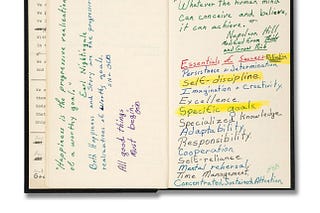 "Happiness is the progressive realization
of a worthy goal."
Earl Nightingale
Both Happiness and Success are the progressive
realizations of worthy goals.
All good things
Must begin
"Whatever the human mind
can conceive and believe,
it can achieve."
Napoleon Hill
and Grow Rich
Essentials of Success
Persistence & determination
Self-discipline
Imagination + Creativity
Excellence
Specific goals
Specialized Knowledge
Adaptability
Responsibility
Cooperation
Self-reliance
Mental rehearsal
Time Management
Concentrated, Sustained Attention